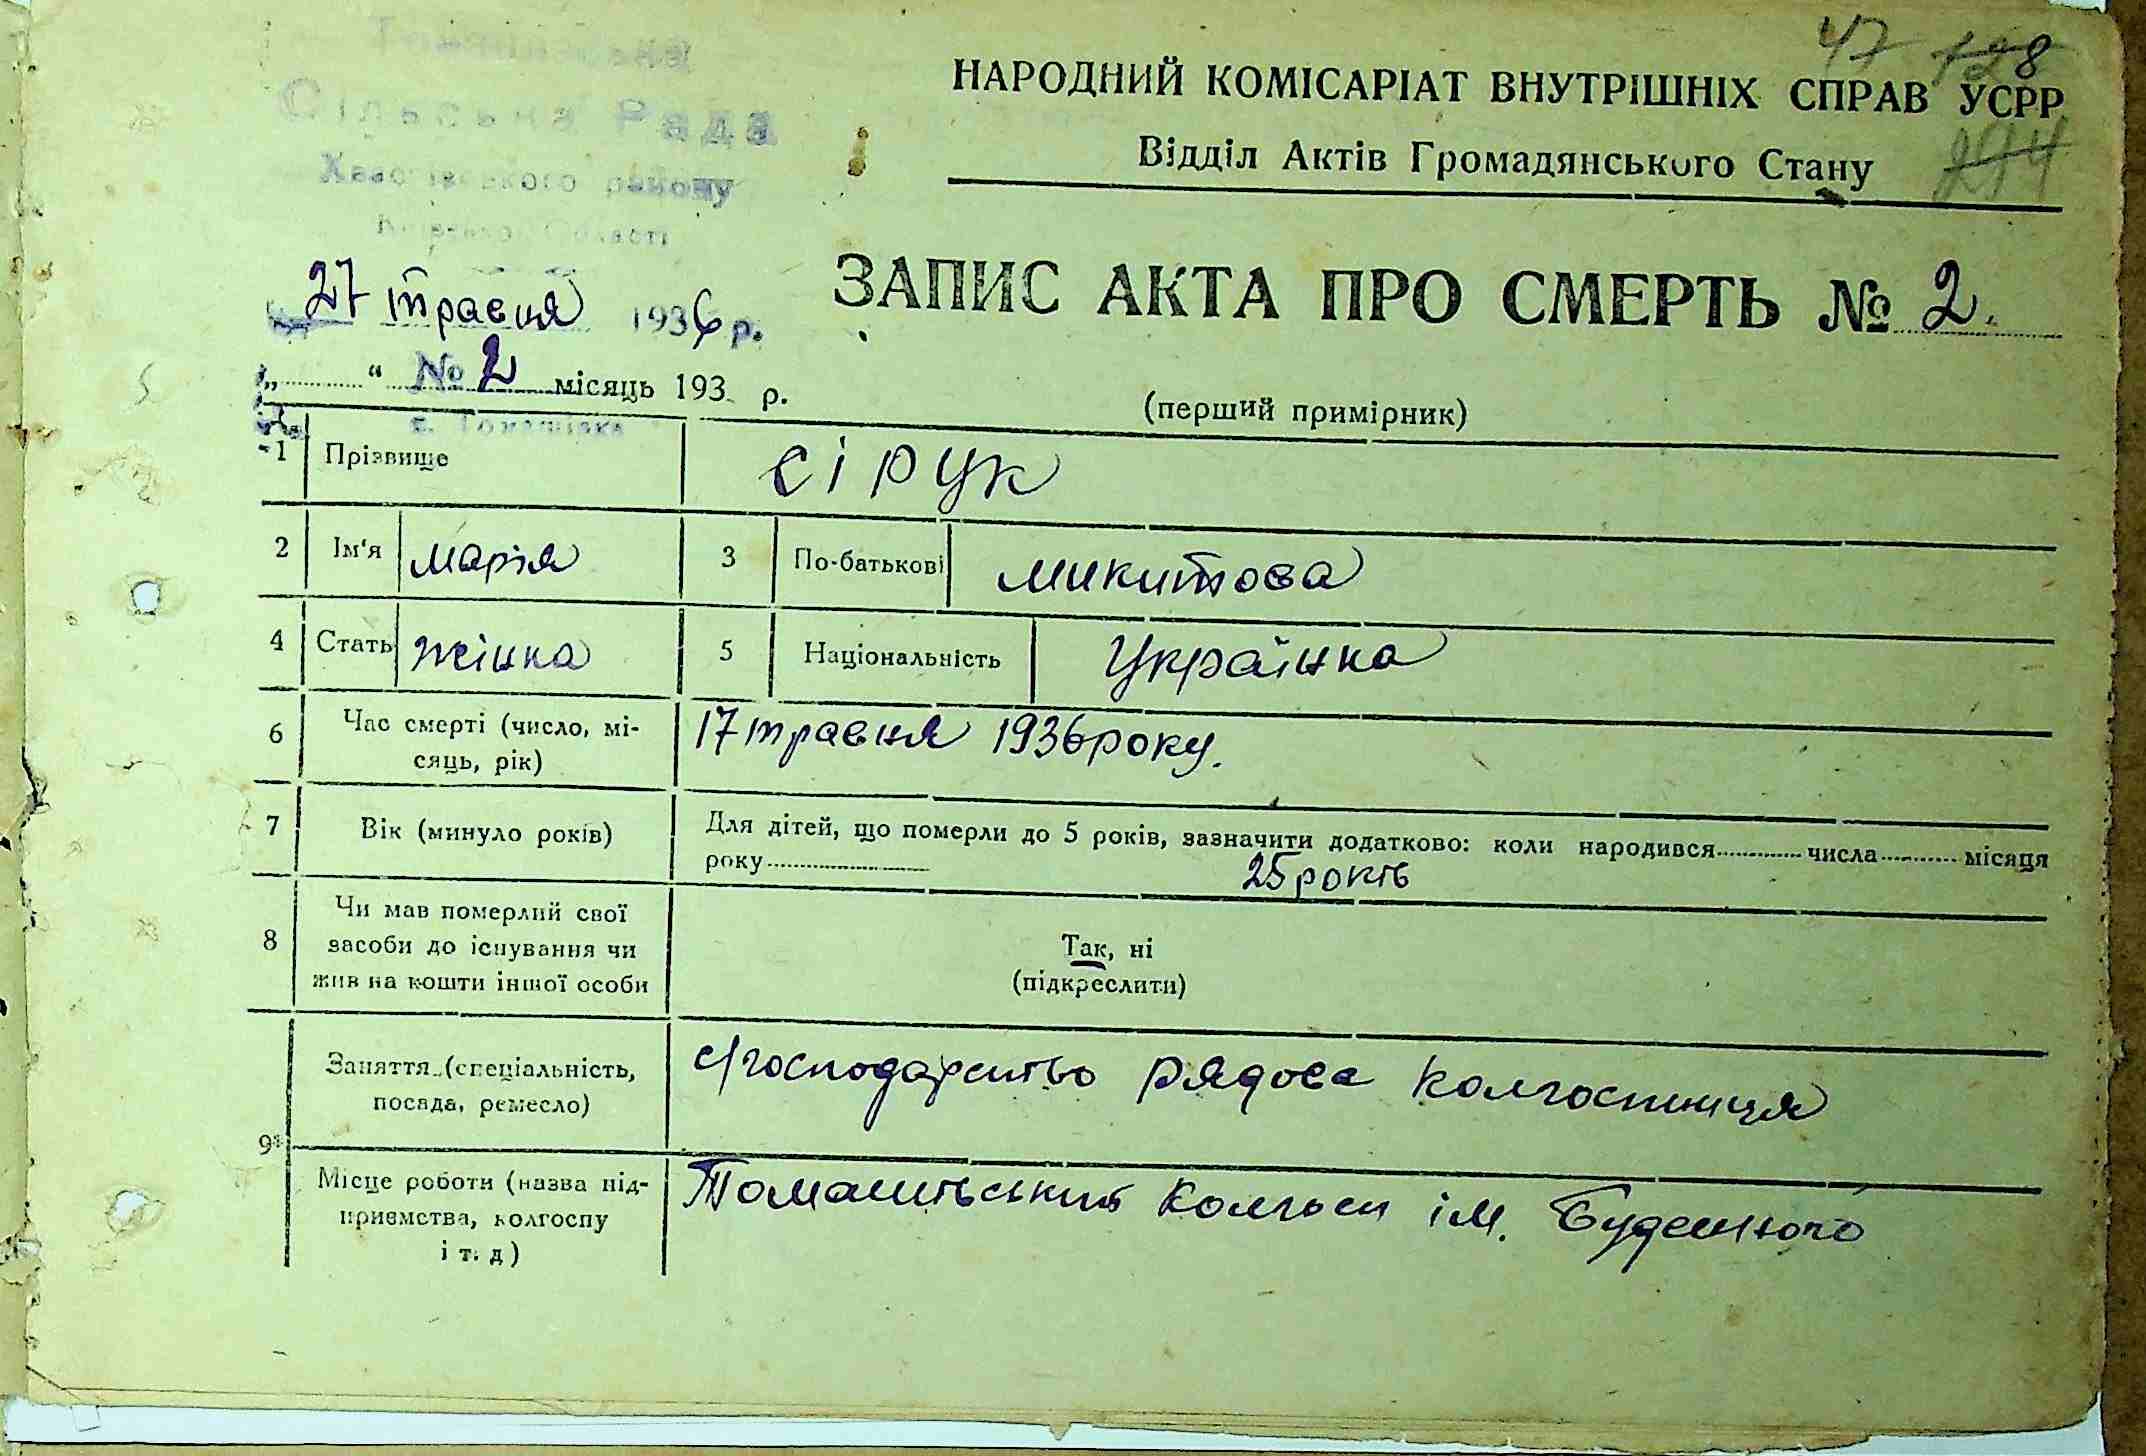 47 128
НАРОДНИЙ КОМІСАРІАТ ВНУТРІШНІХ СПРАВ УСРР
Відділ Актів Громадянського Стану
244
Сільська Рада
району
Області
27 травня 1936 р.
ЗАПИС АКТА ПРО СМЕРТЬ № 2.
№ 2
„ “ місяць 193 р.
(перший примірник)
с. Томашівка
1 Прізвище сірук
2 Ім'я марія 3 По-батькові микитова
4 Стать жінка 5 Національність Українка
6 Час смерті (число, мі-
сяць, рік) 17 травня 1936 року.
7 Вік (минуло років) Для дітей, що померли до 5 років, зазначити додатково: коли народився числа місяця
року 25 років
8 Чи мав померлий свої
засоби до існування чи
жив на кошти іншої особи
Так, ні
(підкреслити)
9 Заняття (спеціальність,
посада, ремесло) с/господарство рядова колгоспниця
Місце роботи (назва під-
приємства, колгоспу
і т. д) Томашівський колгосп ім. Будённого